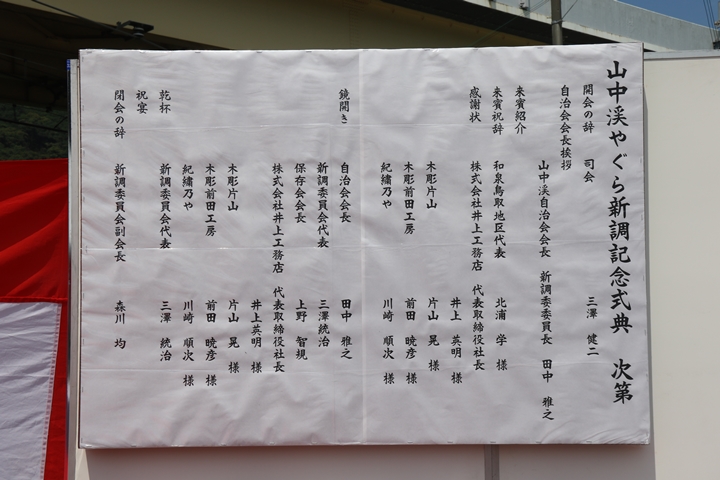 山中渓やぐら新調記念式典 次第
開会の辞 司会 三澤 健二
自治会会長挨拶
山中渓自治会会長 新調委委員長 田中 雅之
来賓紹介
来賓祝辞 和泉鳥取地区代表 北浦 学 様
感謝状 株式会社井上工務店 代表取締役社長
井上 英明 様
木彫片山 片山 晃 様
木彫前田工房 前田 暁彦 様
紀繡乃や 川崎 順次 様
鏡開き 自治会会長 田中 雅之
新調委員会代表 三澤統治
保存会会長 上野 智規
株式会社井上工務店 代表取締役社長
井上英明 様
木彫片山 片山 晃 様
木彫前田工房 前田 暁彦 様
紀繡乃や 川崎 順次 様
乾杯 新調委員会代表 三澤 統治
祝宴
閉会の辞 新調委員会副会長 森川 均